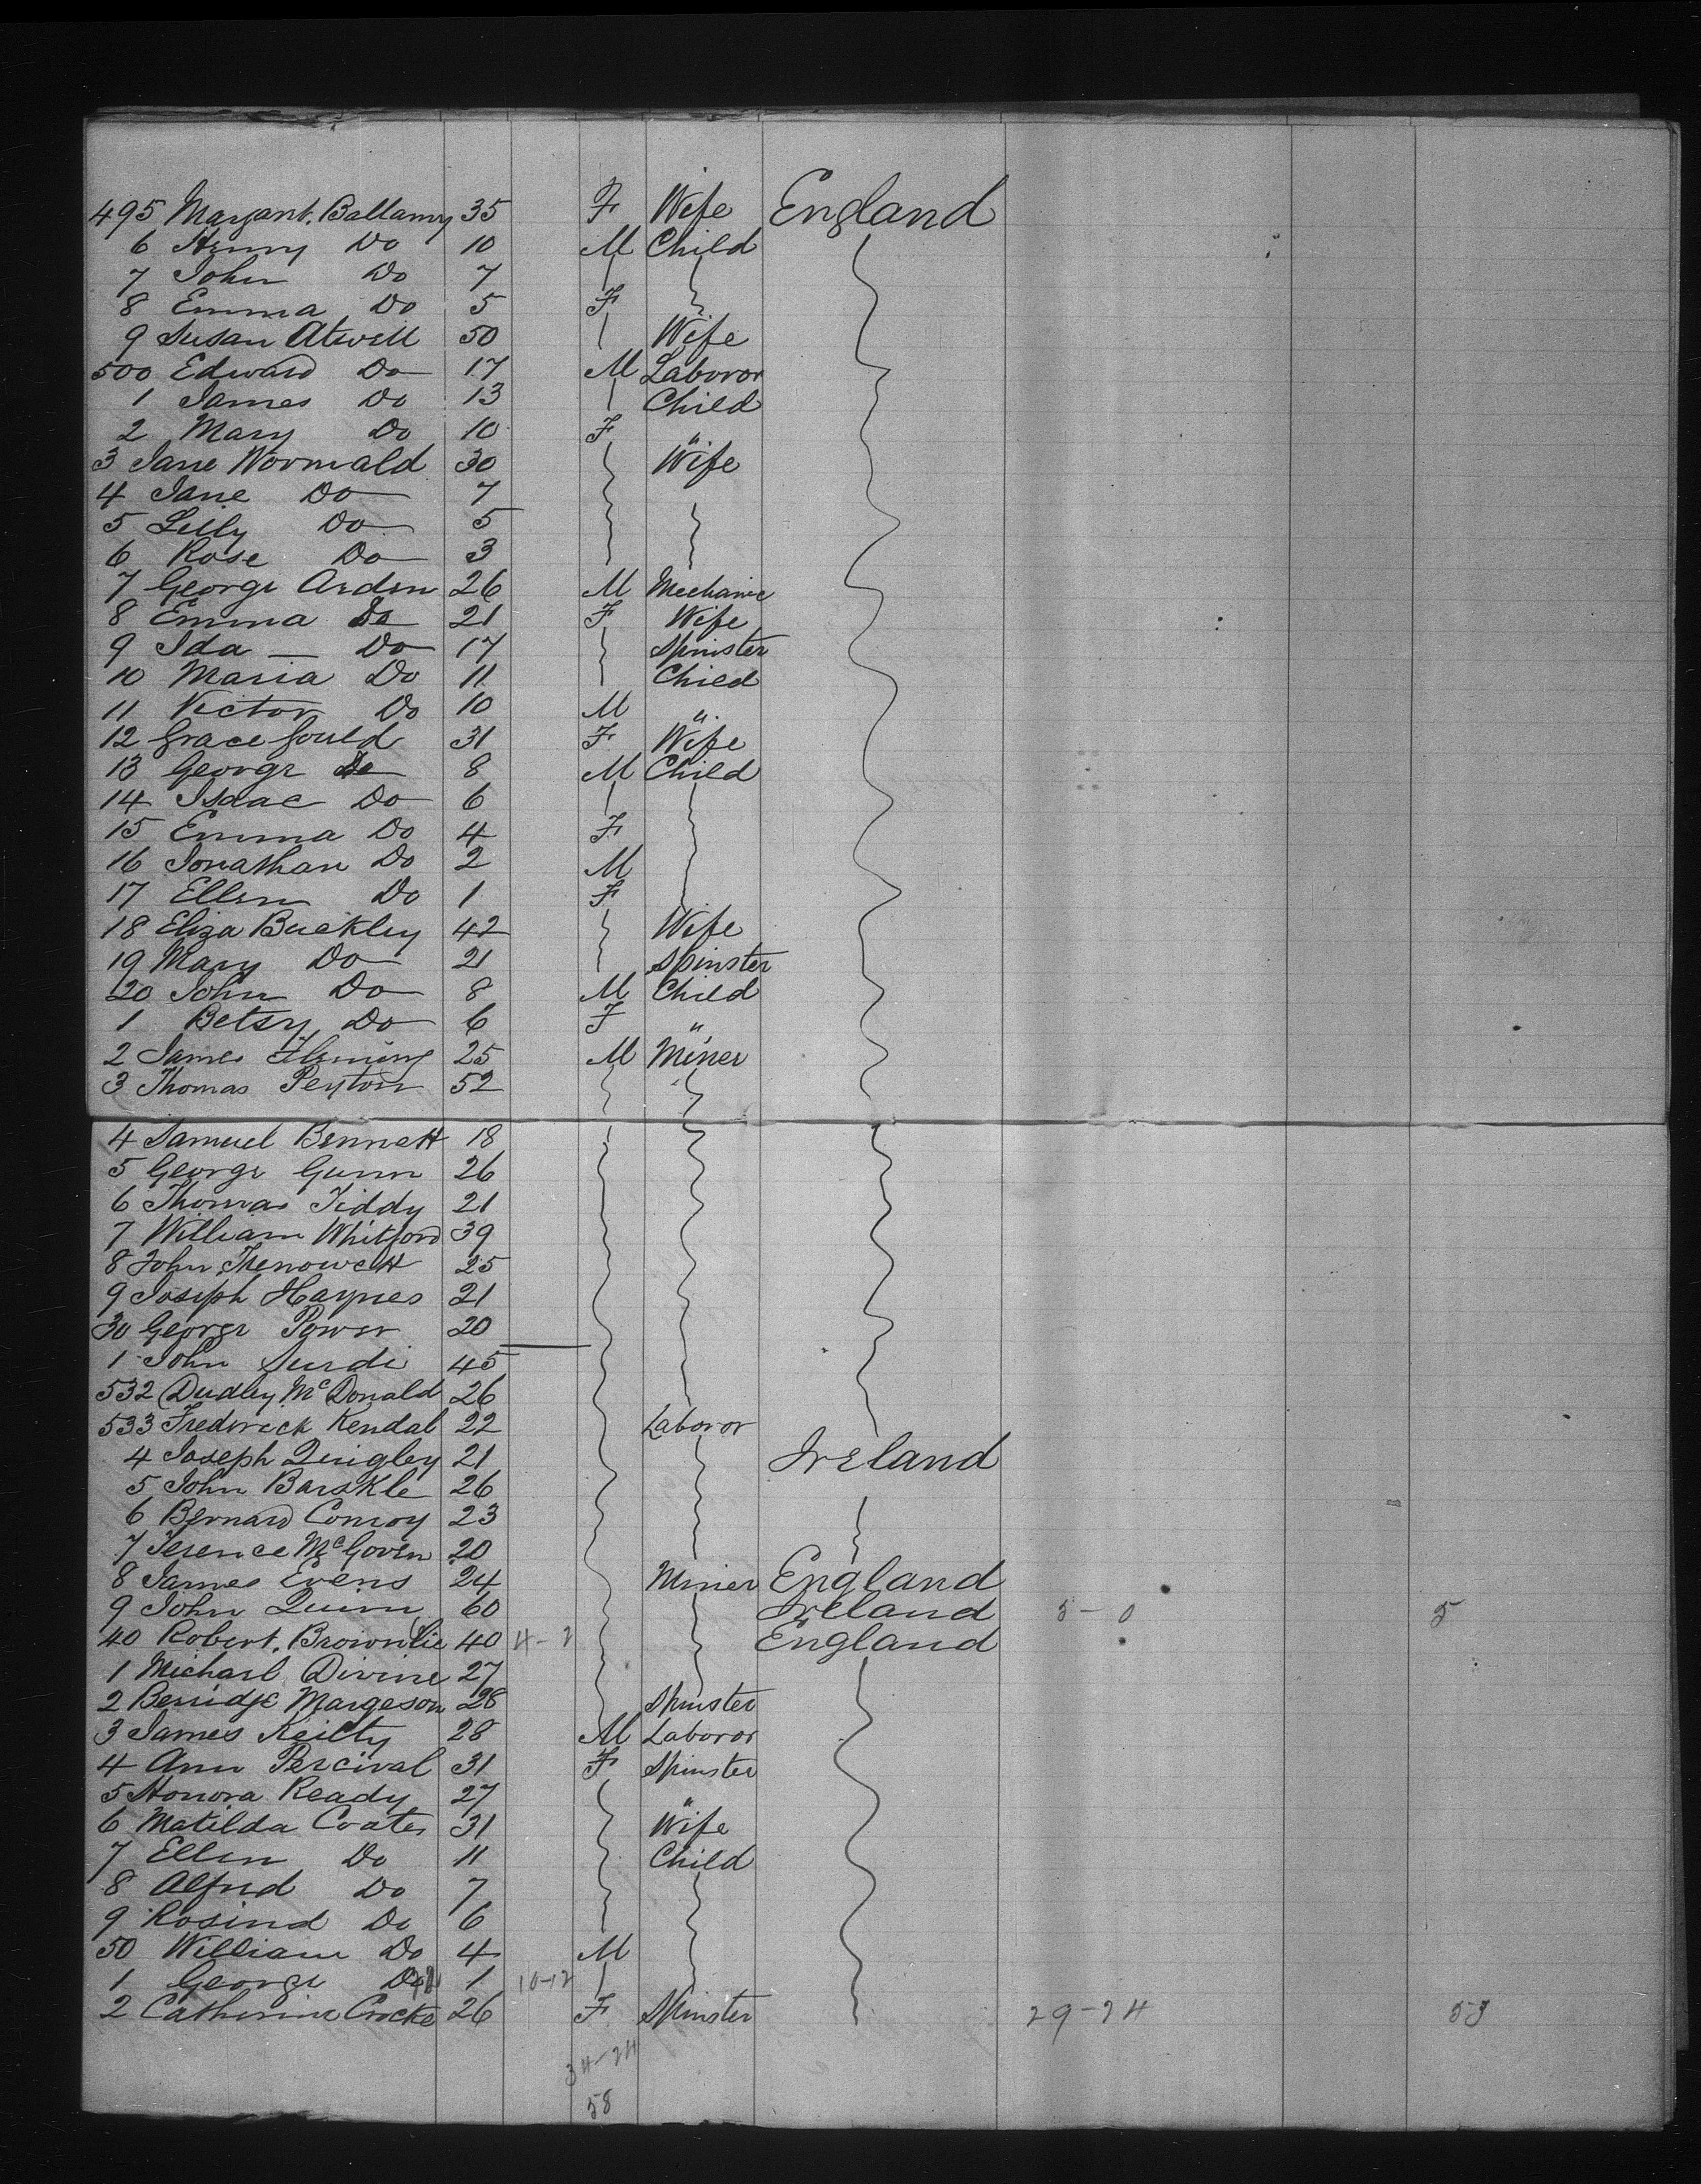 495 Margant. Ballamy 35 F Wife England
6 Henry Do 10 M Child
7 John Do 7
8 Emma Do 5 F
9 Susan Atwell 50 Wife
500 Edward Do 17 M Laboror
1 James Do 13 Child
2 Mary Do 10 F "
3 Jane Wormald 30 Wife
4 Jane Do 7
5 Lilly Do 5
6 Rose Do 3
7 George Arden 26 M Mechanic
8 Emma Do 21 F Wife
9 Ida — Do 17 Spinster
10 Maria Do 11 Child
11 Victor Do 10 M "
12 Grace Gould 31 F Wife
13 George Do 8 M Child
14 Isaac Do 6
15 Emma Do 4 F
16 Jonathan Do 2 M
17 Ellen Do 1 F
18 Eliza Buckley 42 Wife
19 Mary Do 21 Spinster
20 John Do 8 M Child
1 Betsy Do 6 F "
2 James Fleming 25 M Miner
3 Thomas Peyton 52
4 Samuel Bennett 18
5 George Gunn 26
6 Thomas Tiddy 21
7 William Whitford 39
8 John Trenowett 25
9 Joseph Haynes 21
30 George Power 20
1 John 45
532 Dudley McDonald 26
533 Frederick Kendal 22 Laboror
4 Joseph Quigley 21 Ireland
5 John Barskle 26
6 Bernard Conroy 23
7 Terence McGovern 20
8 James Evens 24 Miner England
9 John Quinn 60 Ireland 5-0 5
40 Robert. Brownlie 40 4-2 England
1 Michael Divine 27
2 Berridge Margeson 28 Spinster
3 James Keilty 28 M Laboror
4 Ann Percival 31 F Spinster
5 Honora Ready 27 "
6 Matilda Coates 31 Wife
7 Ellen Do 11 Child
8 Alfred Do 7
9 Rosind Do 6
50 William Do 4 M
1 George Do 1 10-12
2 Catherine Crocke 26 F Spinster 29-24 53
34-24
58